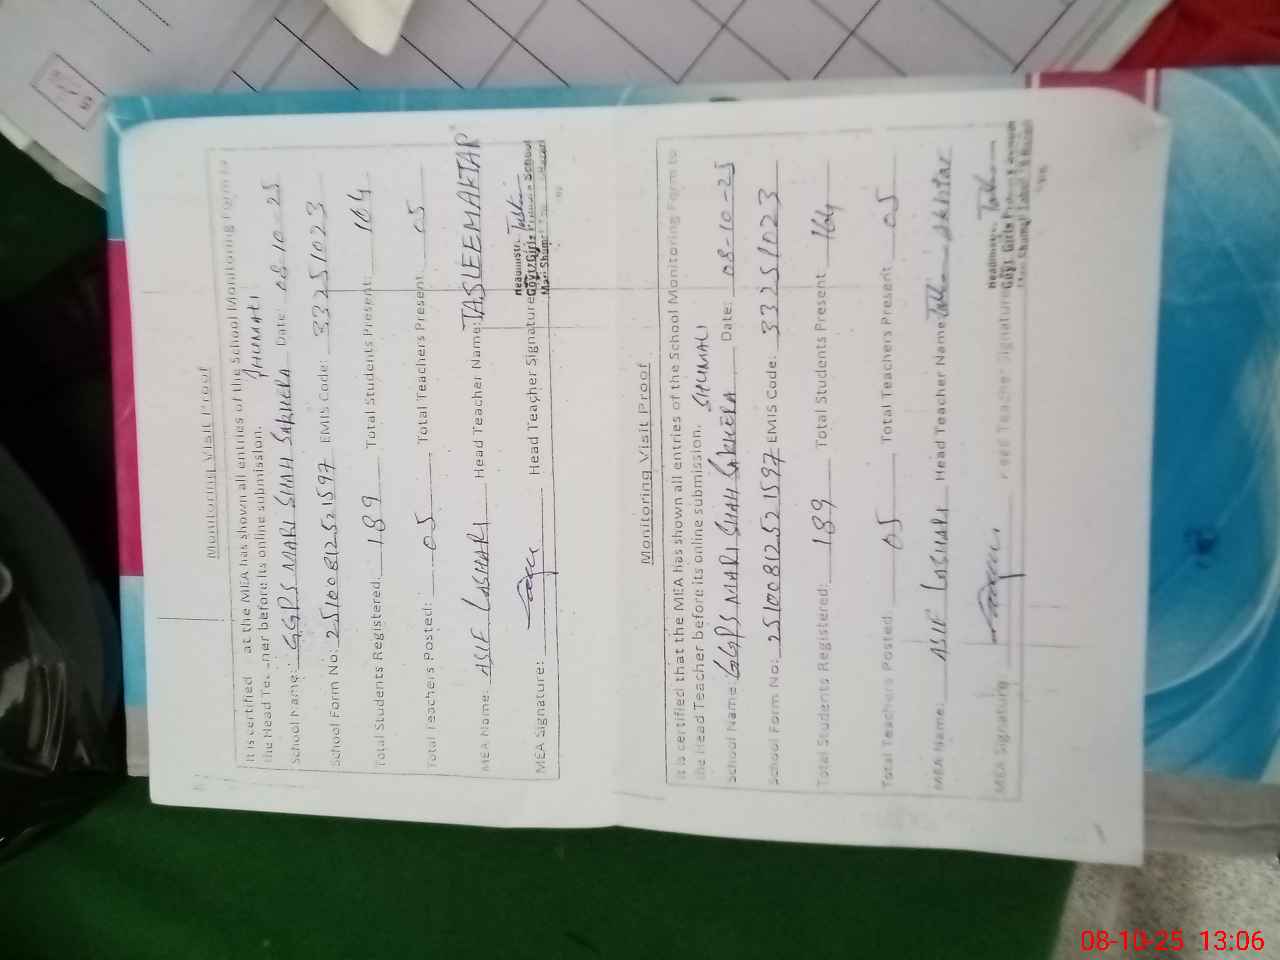 Monitoring Visit Proof
It is certified at the MEA has shown all entries of the School Monitoring Form to
the Head Te ner before its online submission. SHUMALI
School Name: GGPS MARI SHAH SAKHERA Date: 08-10-25
School Form No: 25100812521597 EMIS Code: 33251023
Total Students Registered: 189 Total Students Present: 164
Total Teachers Posted: 05 Total Teachers Present: 05
MEA Name: ASIF LASHARI Head Teacher Name: TASLEEMAKTAR
MEA Signature: Head Teacher Signature
Headmistr.
Govt. Girls Primary School
Mari Shumali
Monitoring Visit Proof
It is certified that the MEA has shown all entries of the School Monitoring Form to
the Head Teacher before its online submission. SHUMALI
School Name: GGPS MARI SHAH SAKHERA Date: 08-10-25
School Form No: 25100812521597 EMIS Code: 33251023
Total Students Registered: 189 Total Students Present 164
Total Teachers Posted: 05 Total Teachers Present 05
MEA Name: ASIF LASHARI Head Teacher Name Akhtar
MEA Signature Head Teacher Signature
Headmistr.
Govt. Girls
08-10-25 13:06